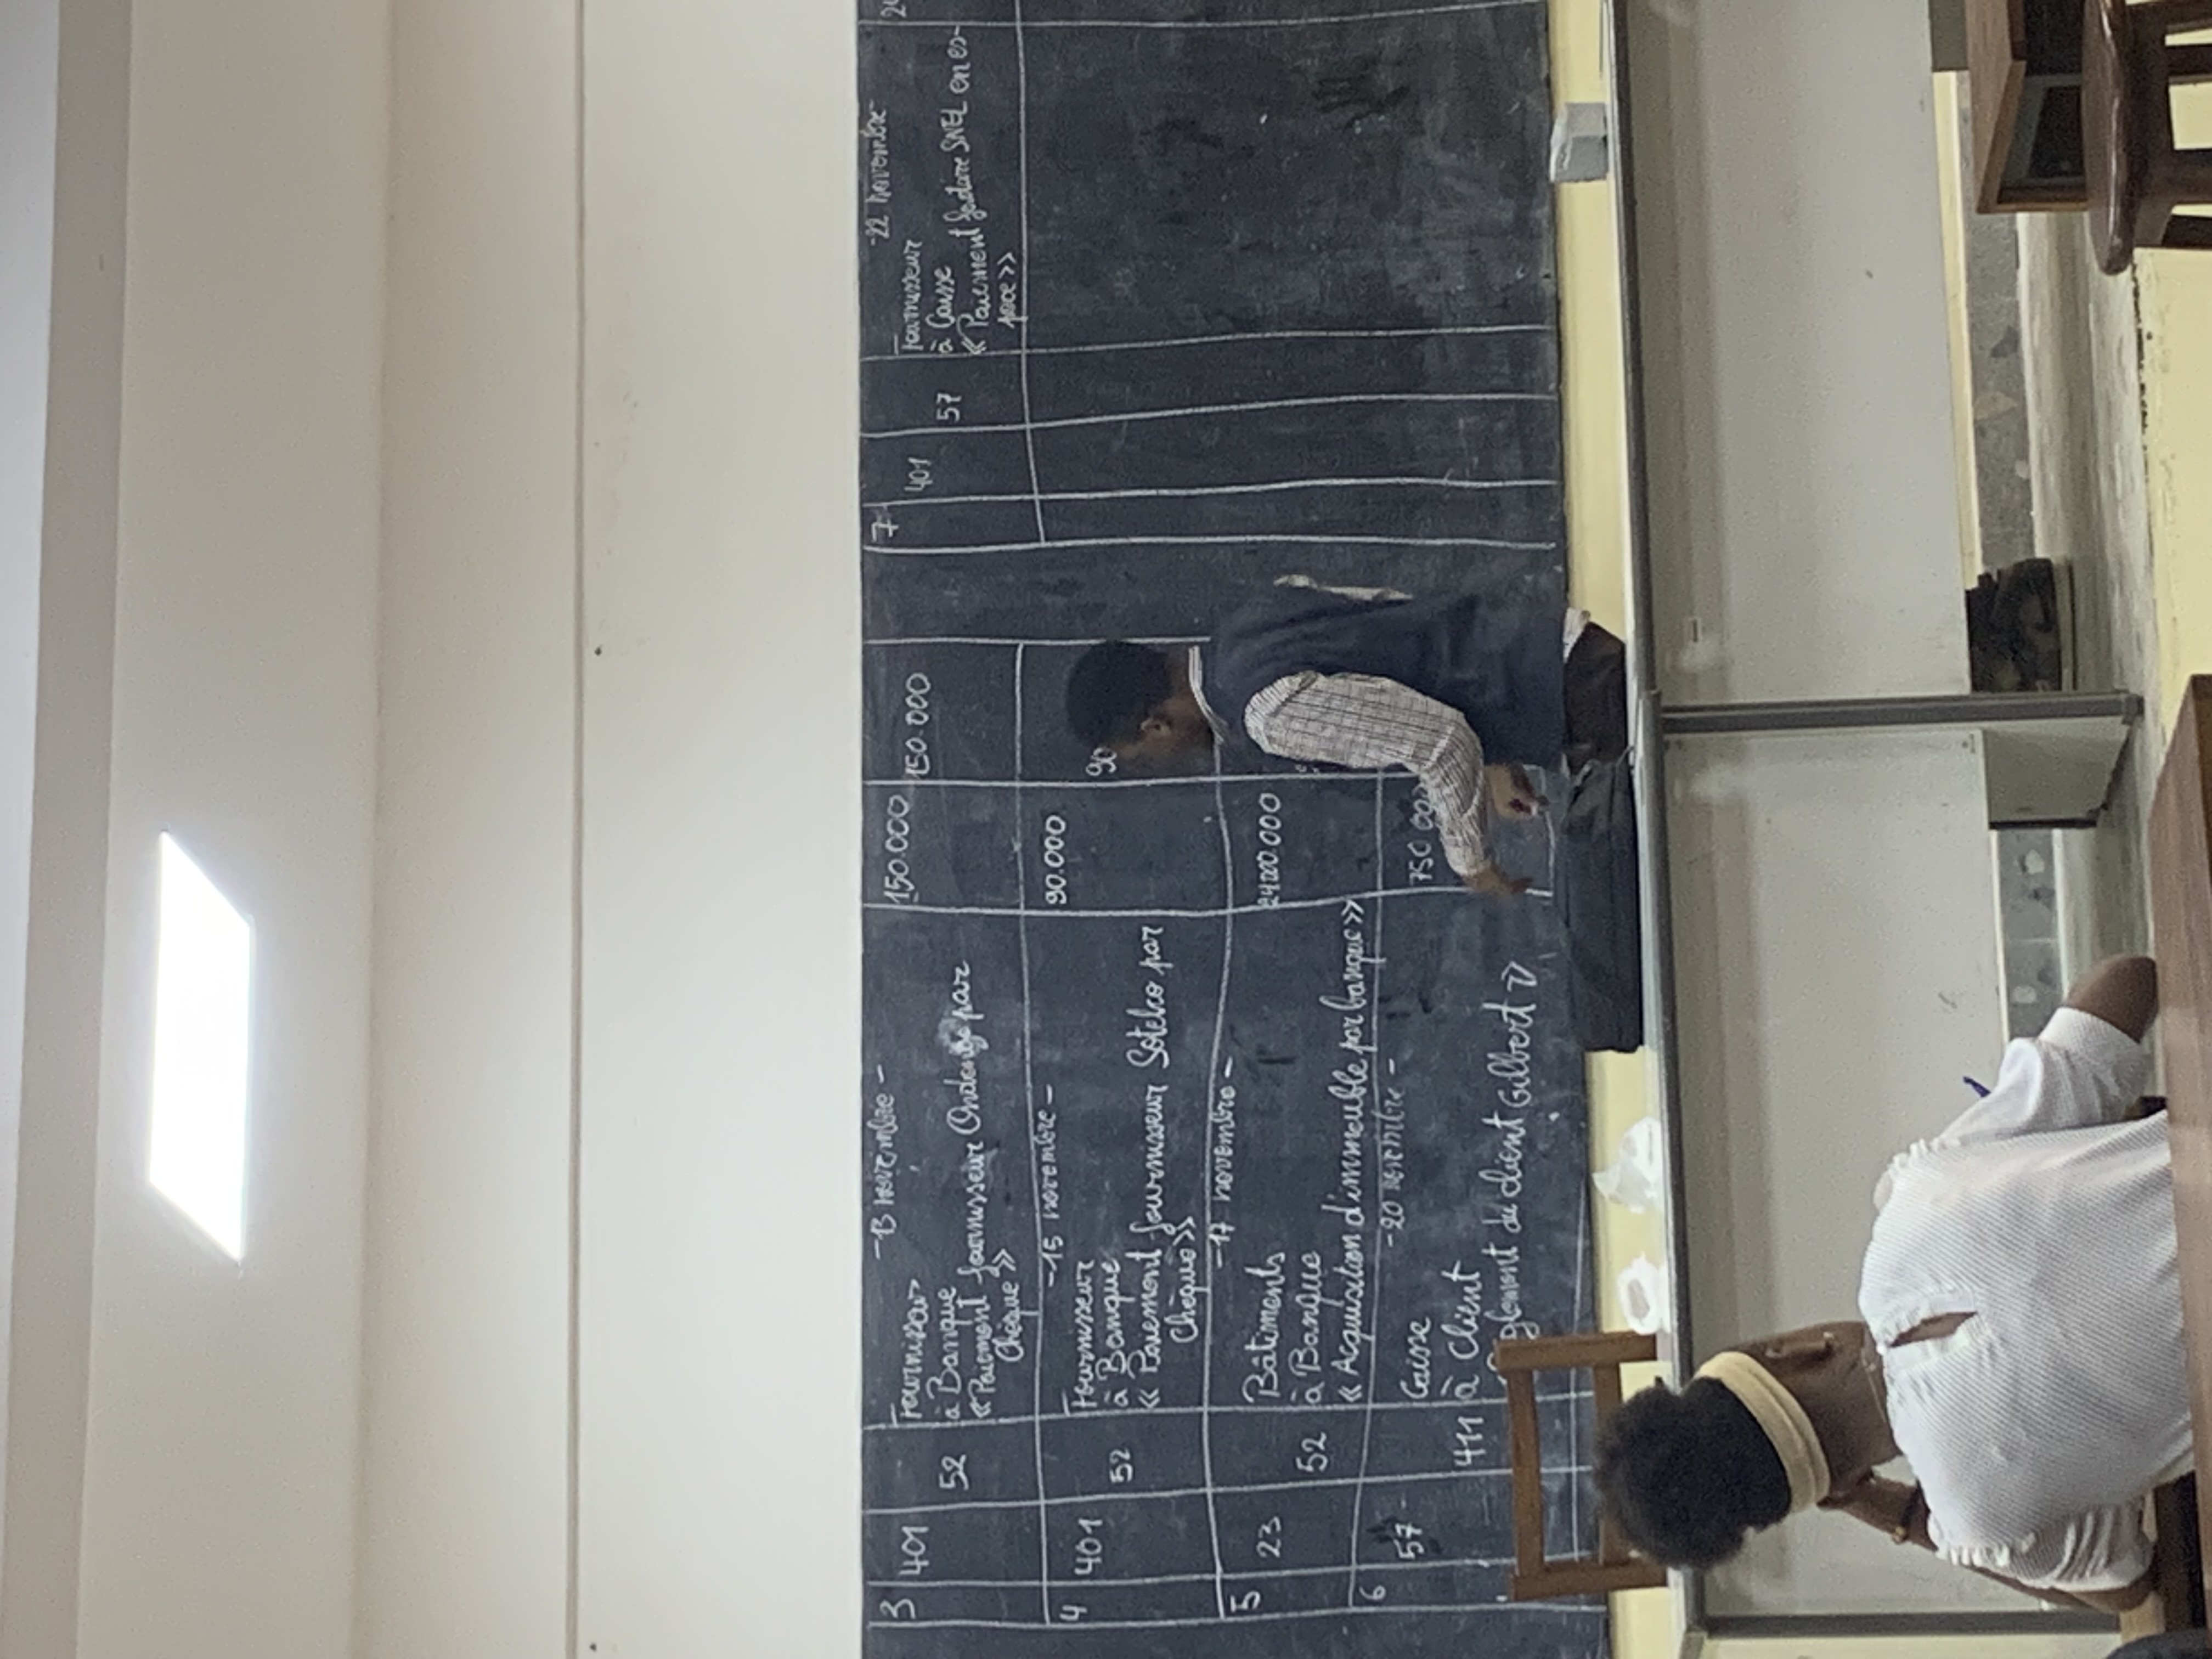 3 401 -13 novembre- 150.000
Fournisseur 150.000
52 à Banque
« Paiement fournisseur Ondongo par
Chèque »
4 401 -15 novembre- 90.000
Fournisseur
52 à Banque 90
« Paiement fournisseur Soteko par
Chèque »
5 -17 novembre-
23 Bâtiments
52 à Banque
« Acquisition d'immeuble par banque »
6 -20 novembre-
57 Caisse 750 000
411 à Client
du client Gilbert »
7 -22 novembre-
401 Fournisseur
57 à Caisse
« Paiement facture SNEL en es-
pèce »